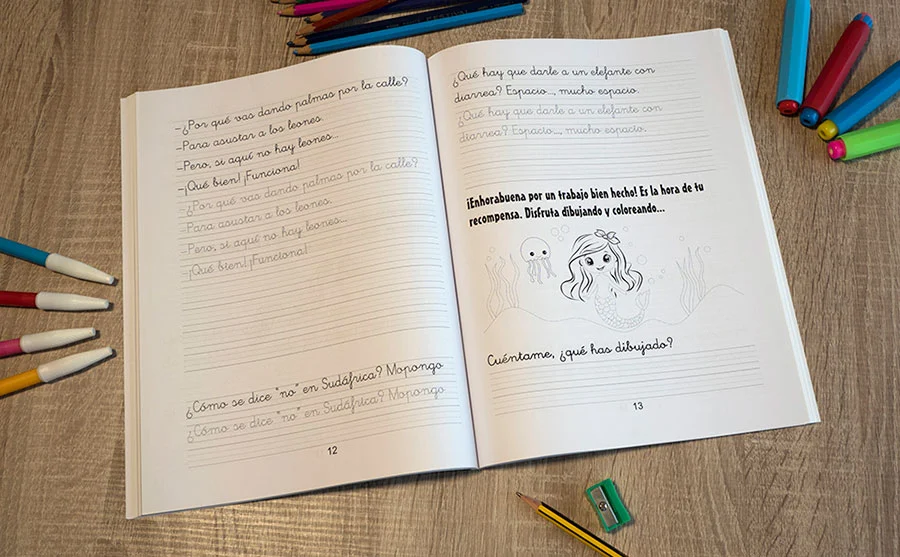 -¿Por qué vas dando palmas por la calle?
-Para asustar a los leones.
-Pero, si aquí no hay leones...
-¡Qué bien! ¡Funciona!
-¿Por qué vas dando palmas por la calle?
-Para asustar a los leones.
-Pero, si aquí no hay leones...
-¡Qué bien! ¡Funciona!
¿Cómo se dice "no" en Sudáfrica? Mopongo
¿Cómo se dice "no" en Sudáfrica? Mopongo
12
¿Qué hay que darle a un elefante con
diarrea? Espacio..., mucho espacio.
¿Qué hay que darle a un elefante con
diarrea? Espacio..., mucho espacio.
¡Enhorabuena por un trabajo bien hecho! Es la hora de tu
recompensa. Disfruta dibujando y coloreando...
Cuéntame, ¿qué has dibujado?
13